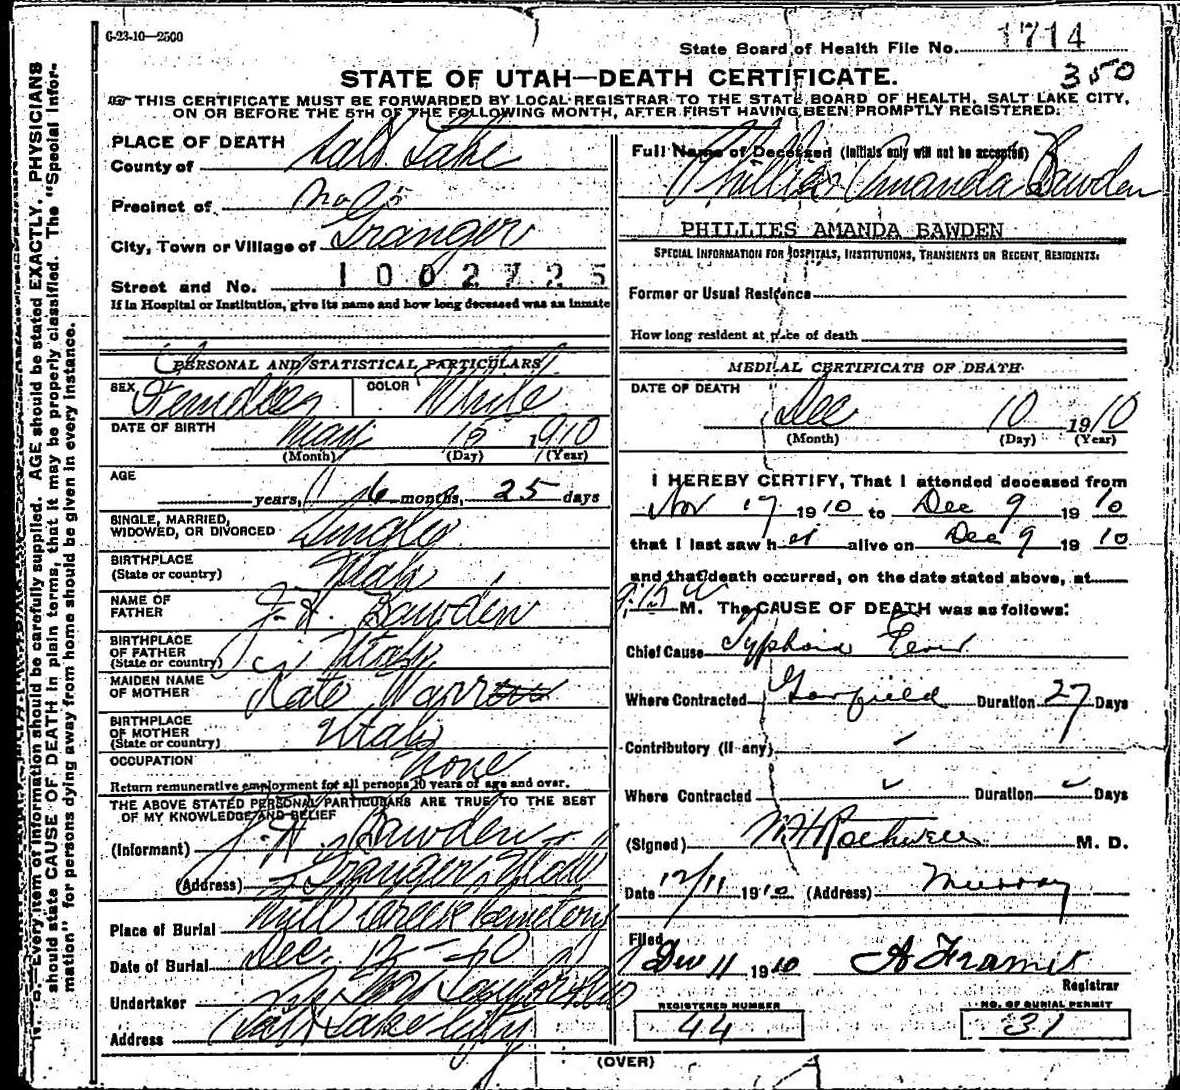 6-23-10—2500
State Board of Health File No. 1714
350
STATE OF UTAH—DEATH CERTIFICATE.
THIS CERTIFICATE MUST BE FORWARDED BY LOCAL REGISTRAR TO THE STATE BOARD OF HEALTH, SALT LAKE CITY,
ON OR BEFORE THE 5TH OF THE FOLLOWING MONTH, AFTER FIRST HAVING BEEN PROMPTLY REGISTERED.
PLACE OF DEATH
County of Salt Lake
Precinct of
City, Town or Village of Granger
Street and No. 1002725
If in Hospital or Institution, give its name and how long deceased was an inmate
PERSONAL AND STATISTICAL PARTICULARS
SEX Female
COLOR White
DATE OF BIRTH May 15 1910
(Month) (Day) (Year)
AGE
years, 6 months, 25 days
SINGLE, MARRIED,
WIDOWED, OR DIVORCED Single
BIRTHPLACE
(State or country) Utah
NAME OF
FATHER J. H. Bawden
BIRTHPLACE
OF FATHER
(State or country) Utah
MAIDEN NAME
OF MOTHER Kate Warr
BIRTHPLACE
OF MOTHER
(State or country) Utah
OCCUPATION None
Return remunerative employment for all persons 10 years of age and over.
THE ABOVE STATED PERSONAL PARTICULARS ARE TRUE TO THE BEST
OF MY KNOWLEDGE AND BELIEF
(Informant) J. H. Bawden
(Address) Granger, Utah
Place of Burial Mill Creek Cemetery
Date of Burial Dec. 12 - 10
Undertaker
Address Salt Lake City
Full Name of Deceased (Initials only will not be accepted)
Phillies Amanda Bawden
PHILLIES AMANDA BAWDEN
SPECIAL INFORMATION FOR HOSPITALS, INSTITUTIONS, TRANSIENTS OR RECENT RESIDENTS.
Former or Usual Residence
How long resident at place of death
MEDICAL CERTIFICATE OF DEATH
DATE OF DEATH
Dec 10 1910
(Month) (Day) (Year)
I HEREBY CERTIFY, That I attended deceased from
Nov 17 1910 to Dec 9 1910
that I last saw her alive on Dec 9 1910
and that death occurred, on the date stated above, at
M. The CAUSE OF DEATH was as follows:
Chief Cause Typhoid Fever
Where Contracted Garfield Duration 27 Days
Contributory (if any)
Where Contracted Duration Days
(Signed) M H Rockwell M. D.
Date 12/11 1910 (Address) Murray
Filed
Dec 11 1910
Registrar
REGISTERED NUMBER
44
NO. OF BURIAL PERMIT
31
(OVER)
Every item of information should be carefully supplied. AGE should be stated EXACTLY. PHYSICIANS
should state CAUSE OF DEATH in plain terms, that it may be properly classified. The "Special Infor-
mation" for persons dying away from home should be given in every instance.